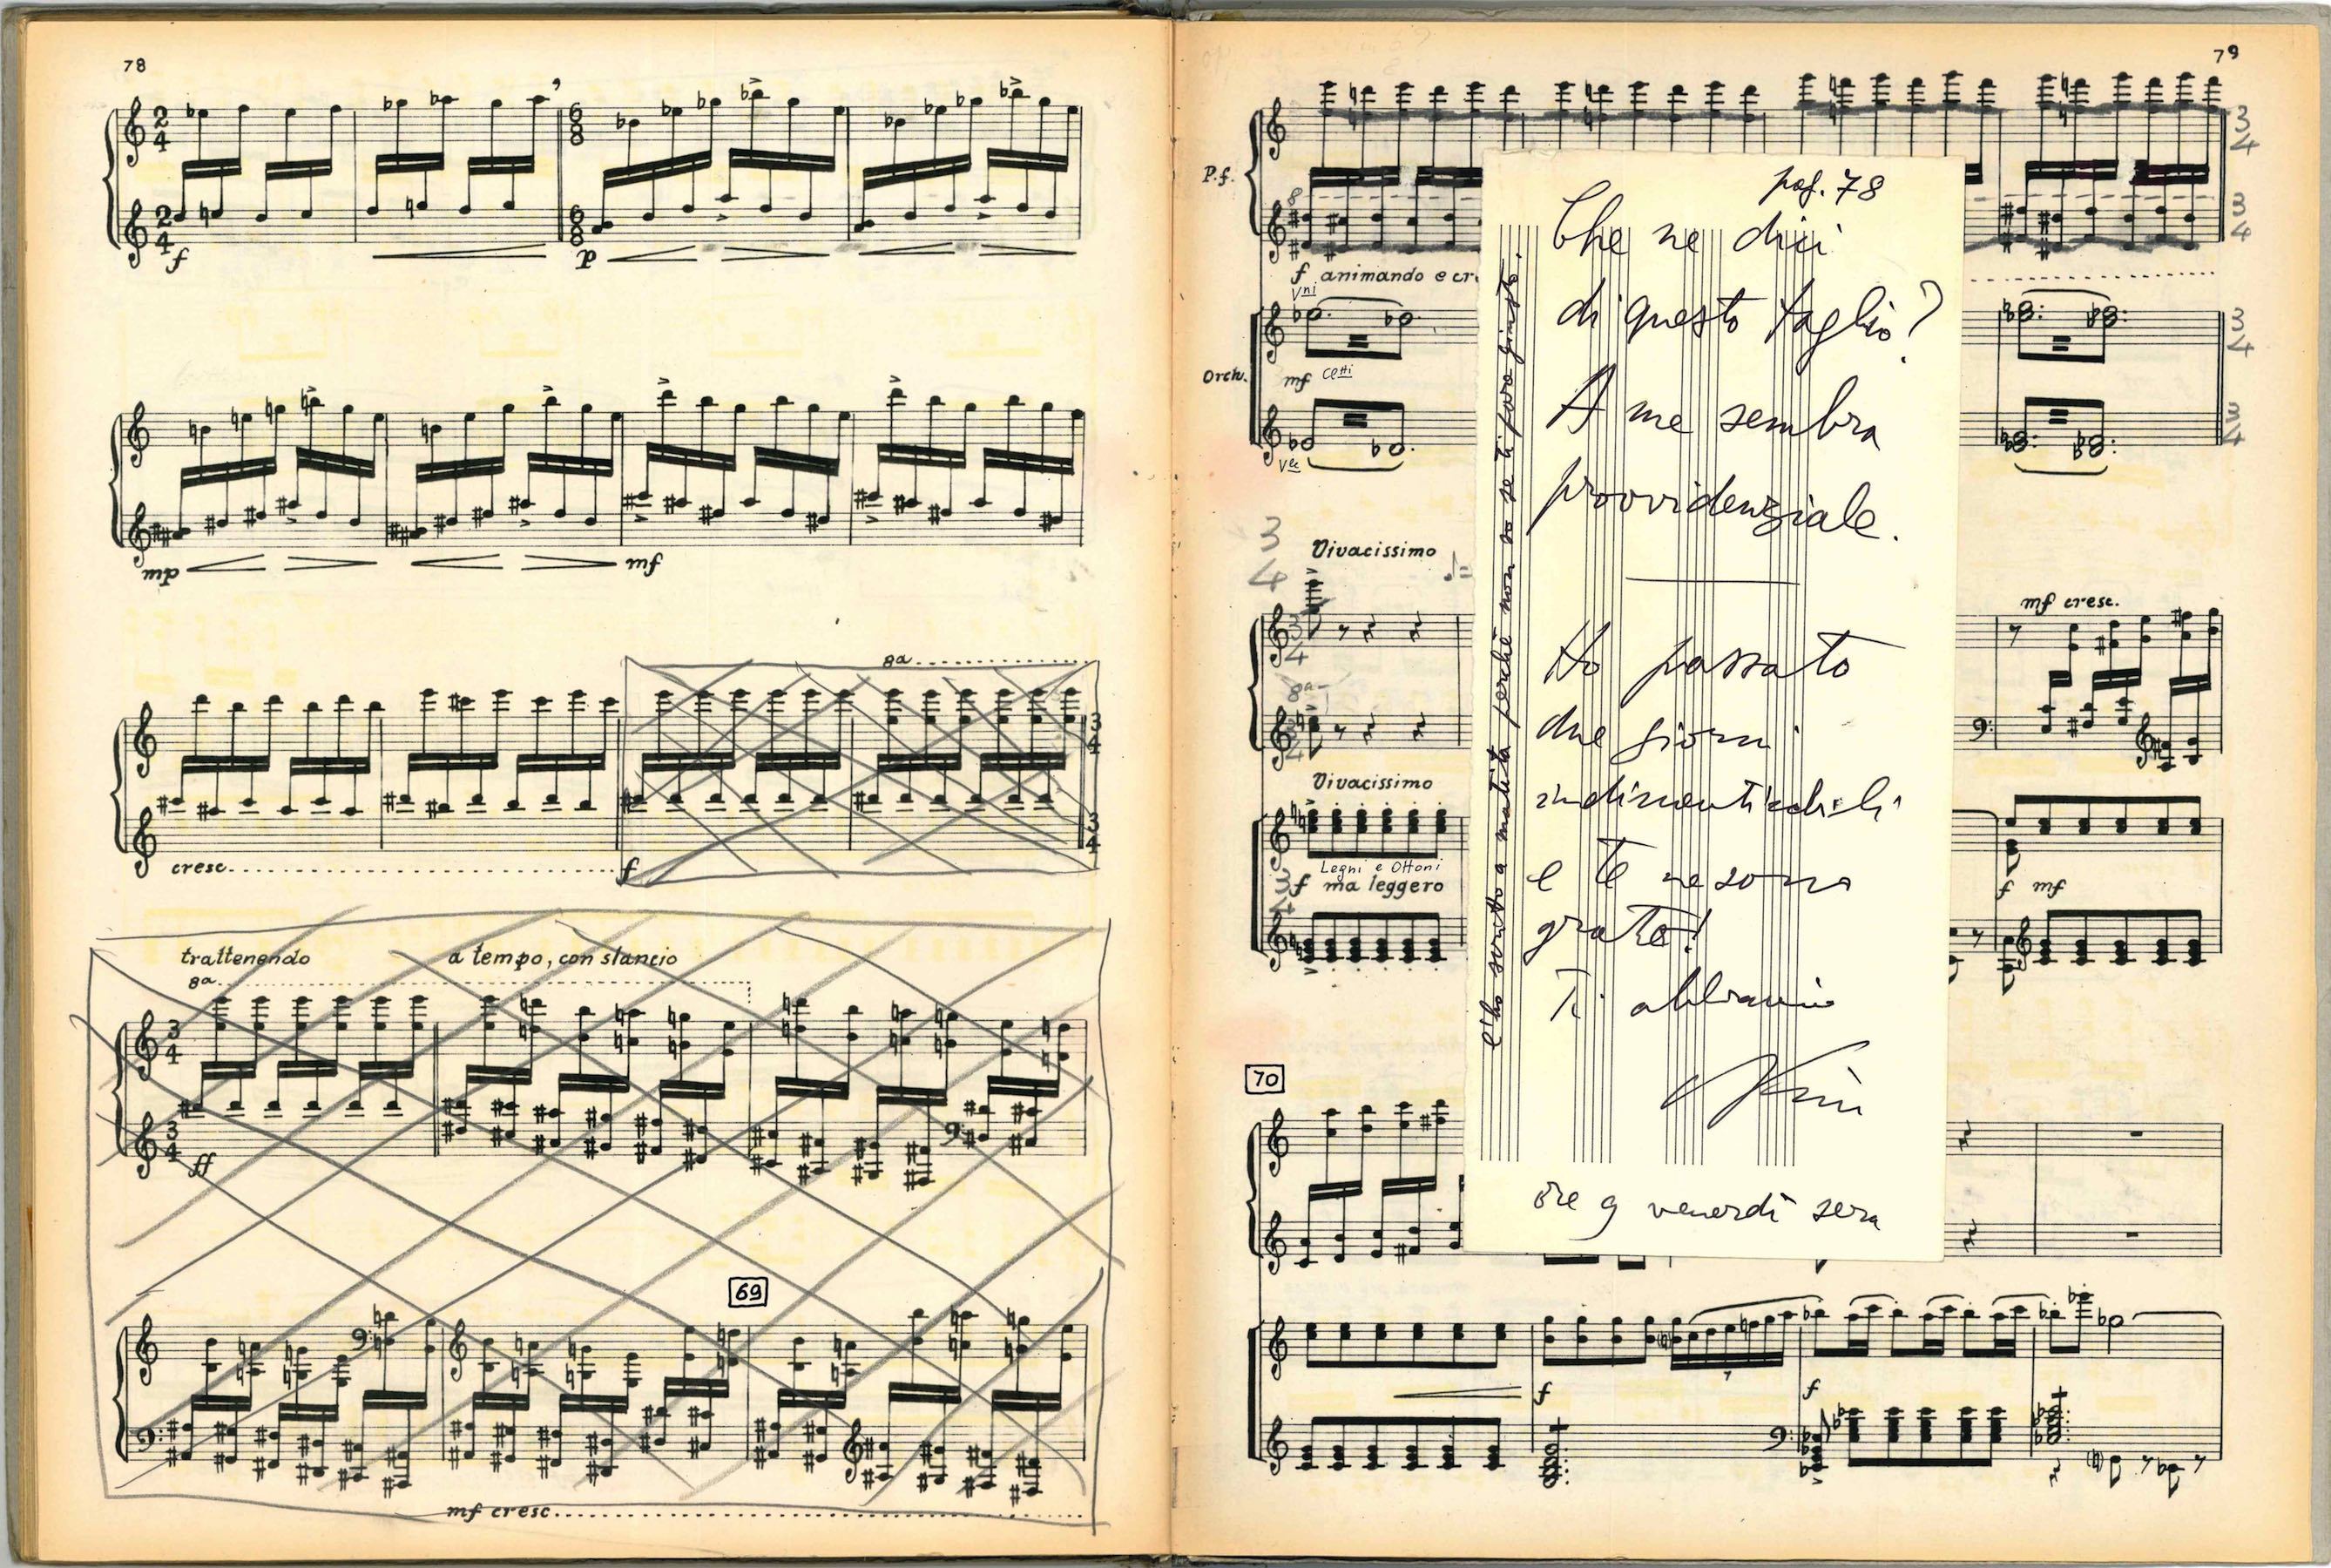 78
2
4
2
4
f
6
8
6
8
p
mp
mf
8a
3
4
3
4
cresc.
f
trattenendo
a tempo, con slancio
8a
3
4
3
4
ff
69
mf cresc.
79
P.f.
8
3
4
3
4
f animando e cr
Vni
Orch.
mf
Cetti
Vle
3
4
3
4
3
4
Vivacissimo
♩=
3
4
8a
3
4
mf cresc.
Vivacissimo
Legni e Ottoni
f ma leggero
3
4
f mf
70
f
7
f
pag. 78
Che ne dici
di questo taglio?
A me sembra
provvidenziale.
Ho passato
due giorni
indimenticabili
e te ne sono
grato!
Ti abbraccio
Nino
ore 9 venerdì sera
l'ho scritto a matita perché non so se ti pare giusto.